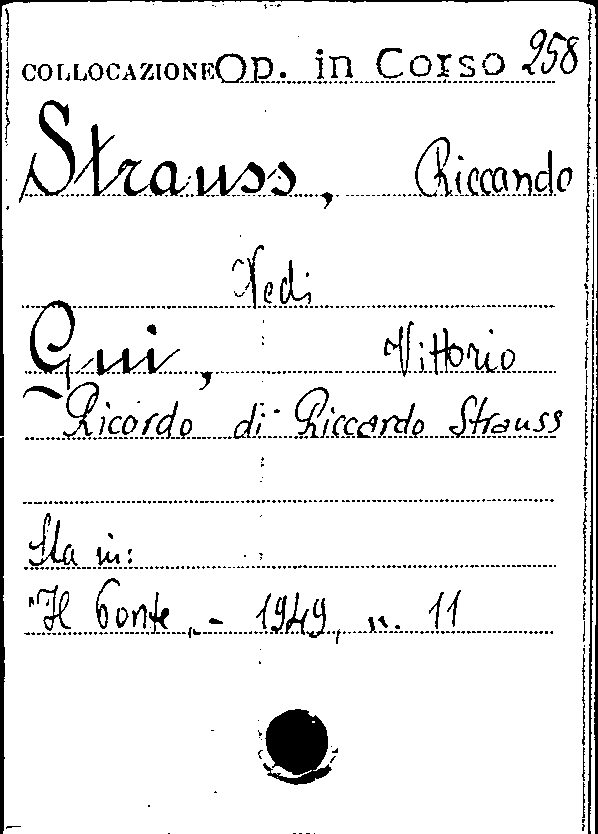 COLLOCAZIONE Op. in Corso 258
Strauss, Riccardo
Vedi
Gui, Vittorio
Ricordo di Riccardo Strauss
Sta in:
"Il Ponte„ - 1949, n. 11